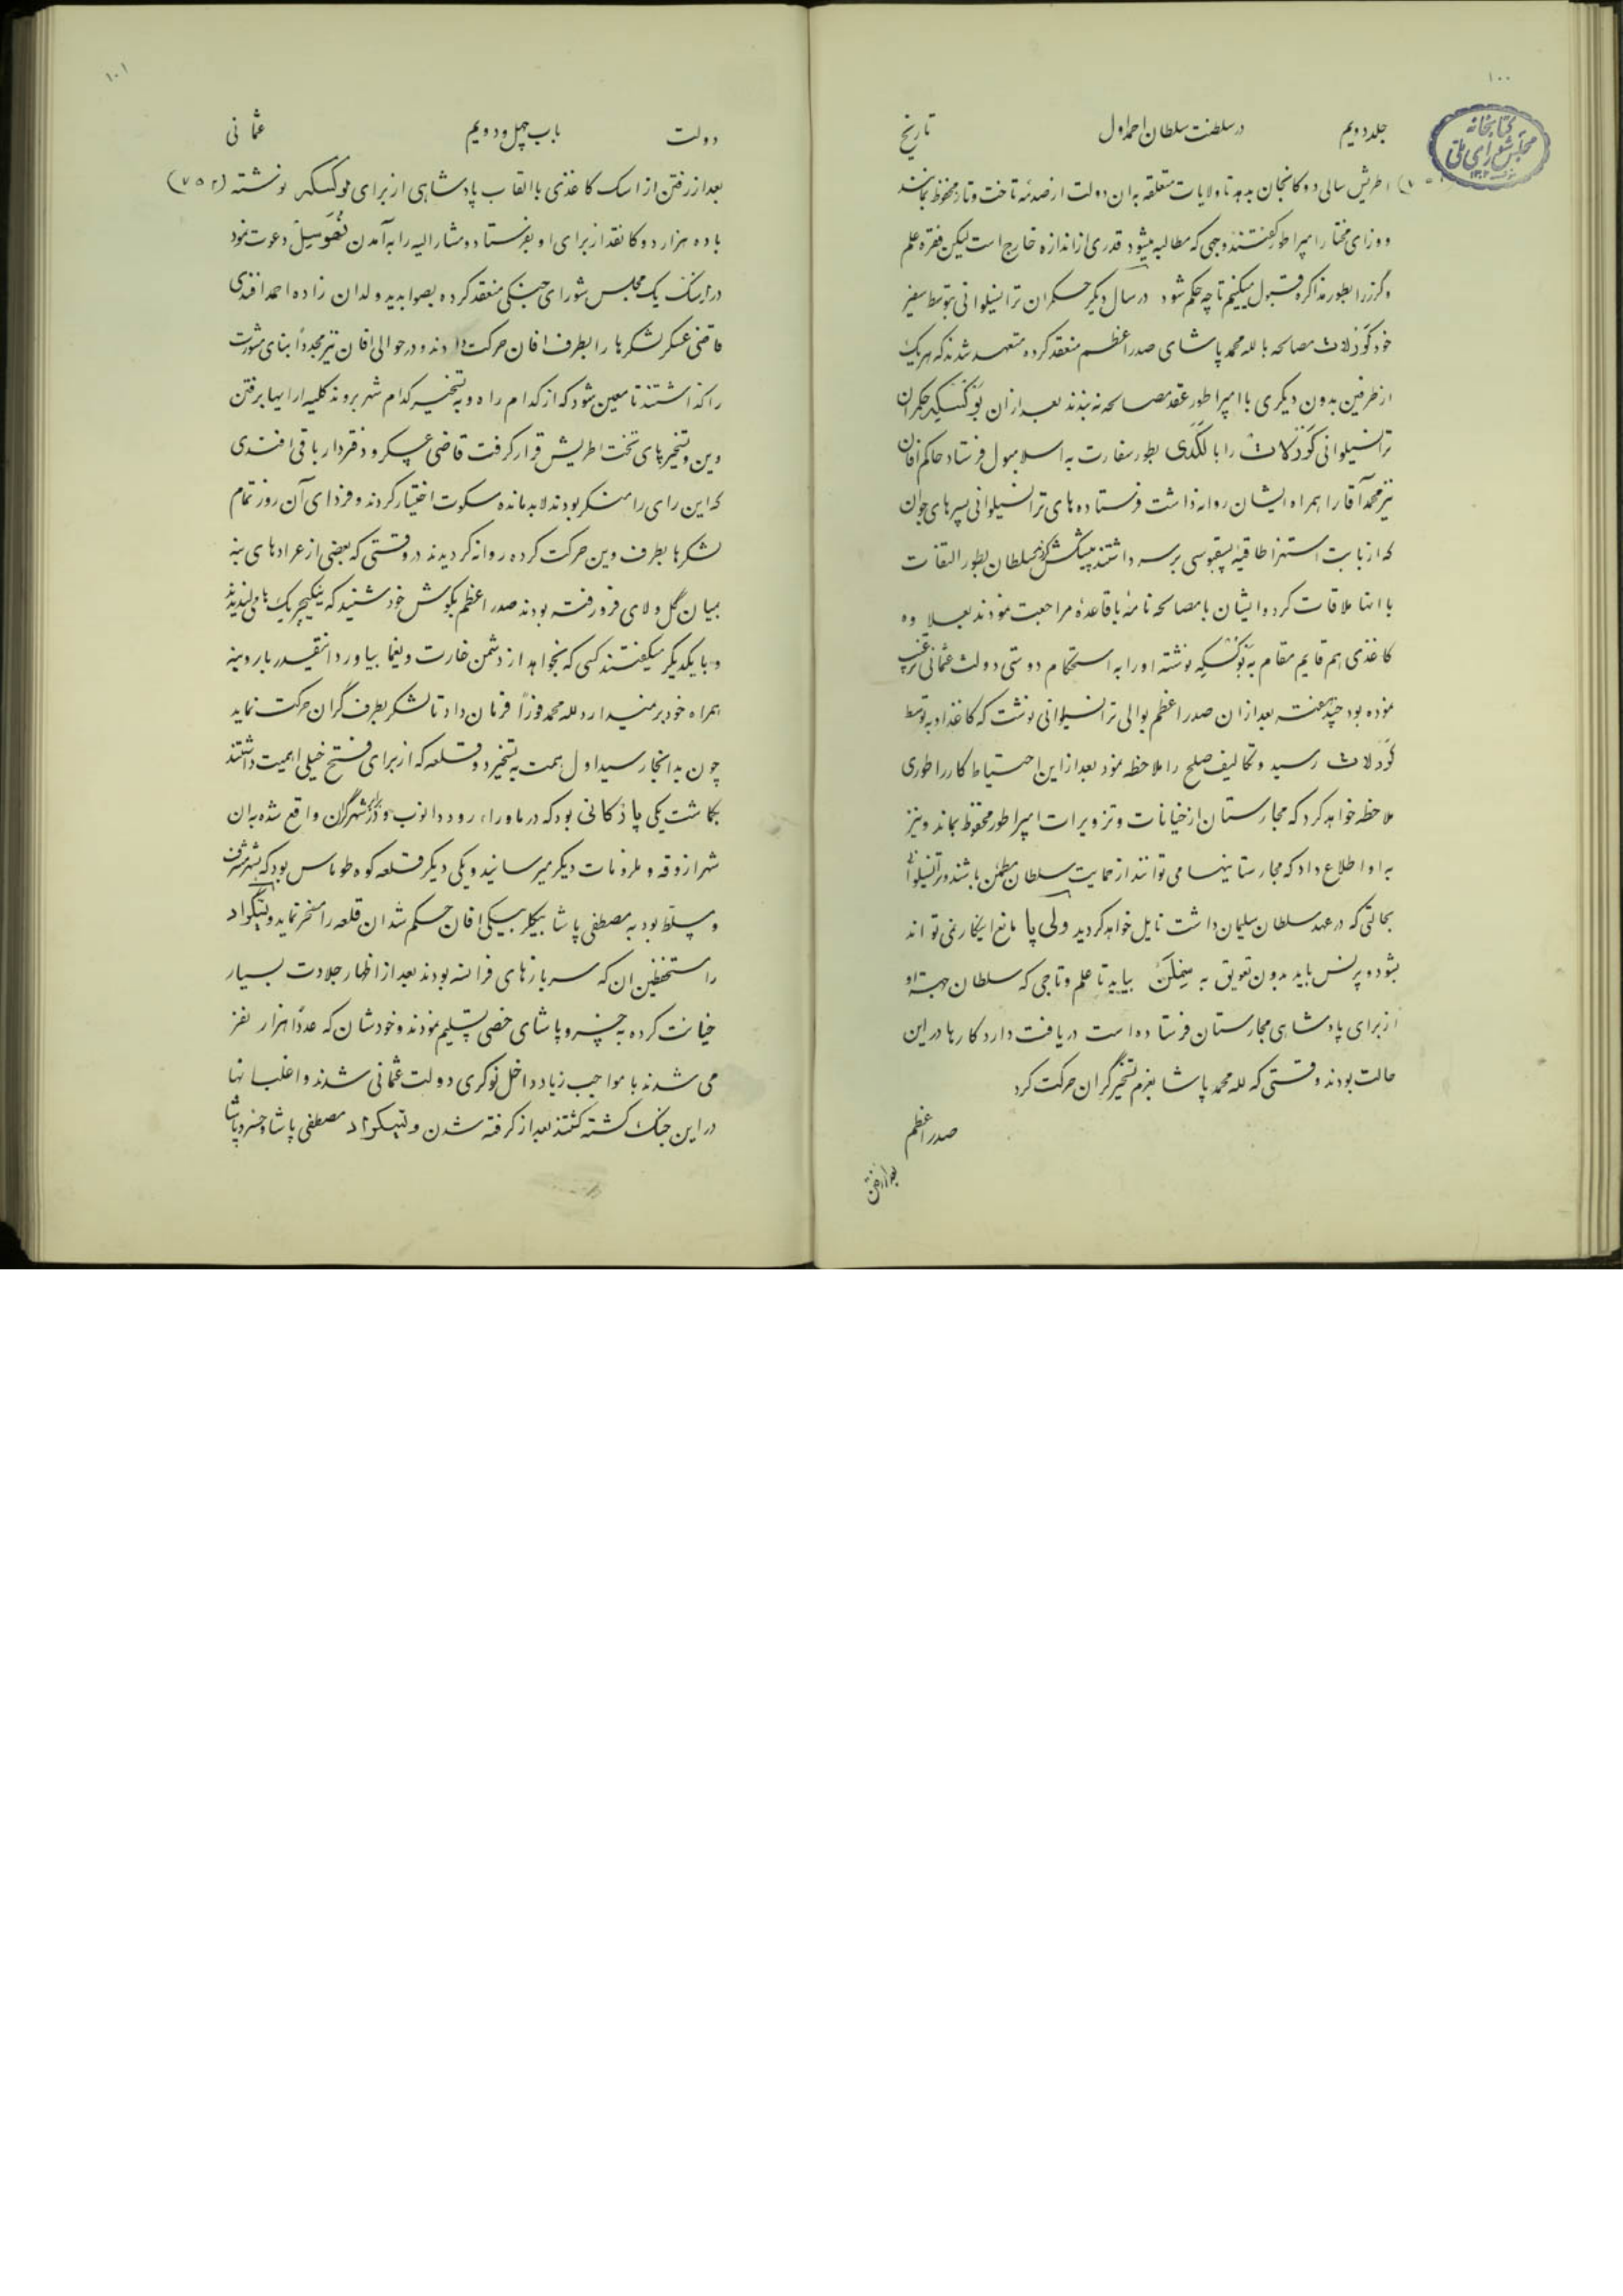 ۱۰۰
جلد دویم در سلطنت سلطان احمد اول تاریخ
کتابخانه مجلس شورای ملی
اطریش سالی دوکا نجان بدهد تا ولایات متعلقه به ان دولت از صدمه تاخت و تاز محفوظ بمانند
و وزرای مختار امپراطور گفتند وجهی که مطالبه میشود قدری از اندازه خارج است لیکن فقره علم
و گرز را بطور مذاکره قبول میکنیم تا چه حکم شود در سال دیگر حکمران ترانسیلوانی بتوسط سفیر
خود کورلات مصالحه با لله محمد پاشای صدر اعظم منعقد کرده متعهد شدند که هر یک
از طرفین بدون دیگری با امپراطور عقد مصالحه نه بندند بعد از ان بوکسکی حکمران
ترانسیلوانی کورلات را با لکدی بطور سفارت به اسلامبول فرستاد حاکم افان
نیز محمد آقا را همراه ایشان روانه داشت فرستاده های ترانسیلوانی سپرهای جوان
که از بابت استهزا طاقیه یسقپوسی بر سر داشتند پیشکش کردند سلطان بطور التفات
با انها ملاقات کرد و ایشان با مصالحه نامهٔ با قاعدهٔ مراجعت نمودند بعلاوه
کاغذی هم قایم مقام به بوکسکی نوشته او را به استحکام دوستی دولت عثمانی ترغیب
نموده بود چند هفته بعد از ان صدر اعظم بوالی ترانسیلوانی نوشت که کاغذ او به توسط
کورلات رسید و تکالیف صلح را ملاحظه نمود بعد از این احتیاط کار را طوری
ملاحظه خواهد کرد که مجارستان از خیانات و تزویرات امپراطور محفوظ بماند و نیز
به او اطلاع داد که مجارستانیها می توانند از حمایت سلطان مطمئن باشند و ترانسیلوانی
بحالتی که در عهد سلطان سلیمان داشت نایل خواهد گردید ولی پا مانع اینکار نمی تواند
بشود و پرنس باید بدون تعویق به بیاید تا علم و تاجی که سلطان جهة او
از برای پادشاهی مجارستان فرستاده است دریافت دارد کارها در این
حالت بودند وقتی که لله محمد پاشا بعزم تسخیر گران حرکت کرد
صدر اعظم
بعد از رفتن
۱۰۱
دولت باب چهل و دویم عثمانی
بعد از رفتن از اسک کاغذی با القاب پادشاهی از برای بوکسکی نوشته (۷۵۲)
با ده هزار دوکا نقد از برای او بفرستاد و مشارالیه را به آمدن دعوت نمود
در اسک یک مجلس شورای جنگی منعقد کرده بصوابدید ولدان زاده احمد افندی
قاضی عسکر لشکرها را بطرف افان حرکت دادند و در حوالی افان نیز مجدداً بنای مشورت
را گذاشتند تا معین شود که از کدام راه و به تسخیر کدام شهر بروند کلیه ارایها برفتن
وین و تسخیر پای تخت اطریش قرار گرفت قاضی عسکر و دفتردار باقی افندی
که این رای را منکر بودند لابد مانده سکوت اختیار کردند و فردای آن روز تمام
لشکرها بطرف وین حرکت کرده روانه گردیدند در وقتی که بعضی از عرادهای بنه
بمیان گل و لای فرو رفته بودند صدر اعظم بگوش خود شنید که ینگیچریک ها می لندیدند
و با یکدیگر میگفتند کسی که بخواهد از دشمن غارت و یغما بیاورد انقیدر بار و بنه
همراه خود بر نمیدارد لله محمد فوراً فرمان داد تا لشکر بطرف گران حرکت نماید
چون بدانجا رسید اول همت به تسخیر دو قلعه که از برای فتح خیلی اهمیت داشتند
بگماشت یکی پادکانی بود که در ماوراء رود دانوب و در برابر شهر گران واقع شده به ان
شهر ازوقه و ملزومات دیگر میرسانید و یکی دیگر قلعه کوه طوماس بود که بشهر مشرف
و مسلط بود به مصطفی پاشا بیگلر بیگی افان حکم شد ان قلعه را مسخر نماید ویشگراد
را مستحفظین ان که سربازهای فرانسه بودند بعد از اظهار جلادت بسیار
خیانت کرده به خسرو پاشای خصی تسلیم نمودند و خودشان که عدداً هزار نفر
می شدند با مواجب زیاد داخل نوکری دولت عثمانی شدند و اغلب انها
در این جنگ کشته گشتند بعد از گرفته شدن ویشگراد مصطفی پاشا و خسرو پاشا